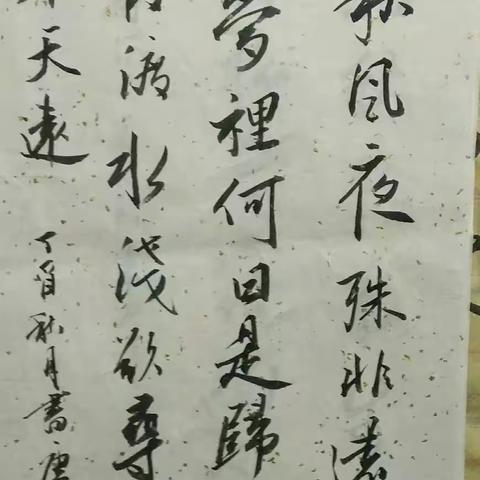 秋风夜殊非遠
夢裡何日是歸
渡水茂欲尋
天遠
丁酉秋月書唐